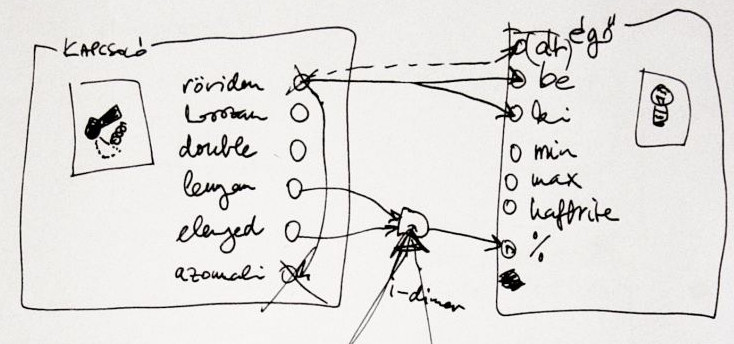 KAPCSOLÓ
röviden
hosszan
double
lenyom
elenged
azonnali
égő
(ár)
be
ki
min
max
%
1-dimen